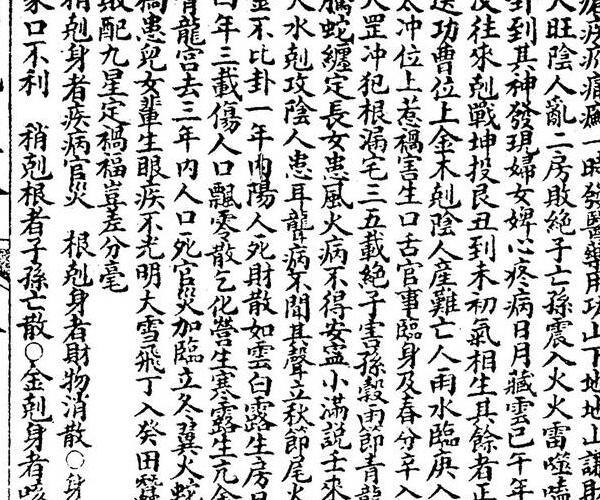 瘡疾疥癆癩一時發醫藥用功山下地地山謙財
人旺陰人亂二房敗絕子亡孫震入火火雷噬嗑
卦到其神發現婦女婢心疼病日月藏雲己午年
反往來剋戰坤投艮丑到未初氣相生其餘者正
逆功曹位上金木剋陰人産難亡人雨水臨庚入
太冲位上惹禍害生口舌官事臨身及春分辛入
天罡冲犯根漏宅三五載絕子害孫榖雨節青龍
騰蛇纏定長女患風火病不得安寍小滿説壬來
入水剋攻陰人患耳聾病不聞其聲立秋節尾火
金不比卦一年內陽人死財散如雲白露生房日
四年三載傷人口飄零散乞化營生寒露生亢金
青龍宮去三年內人口死官災加臨立冬翼火蛇
禍患兒女輩生眼疾不光明大雪飛丁入癸田蠶
敢配九星定禍福豈差分毫
稍剋身者疾病官災 根剋身者財物消散○身
家口不利 稍剋根者子孫亡散○金剋身者咳